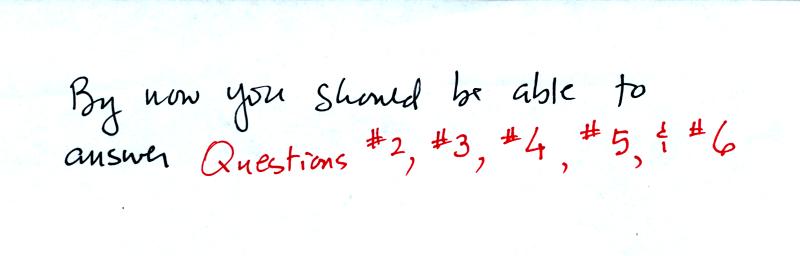 By now you should be able to
answer Questions #2, #3, #4, #5, & #6